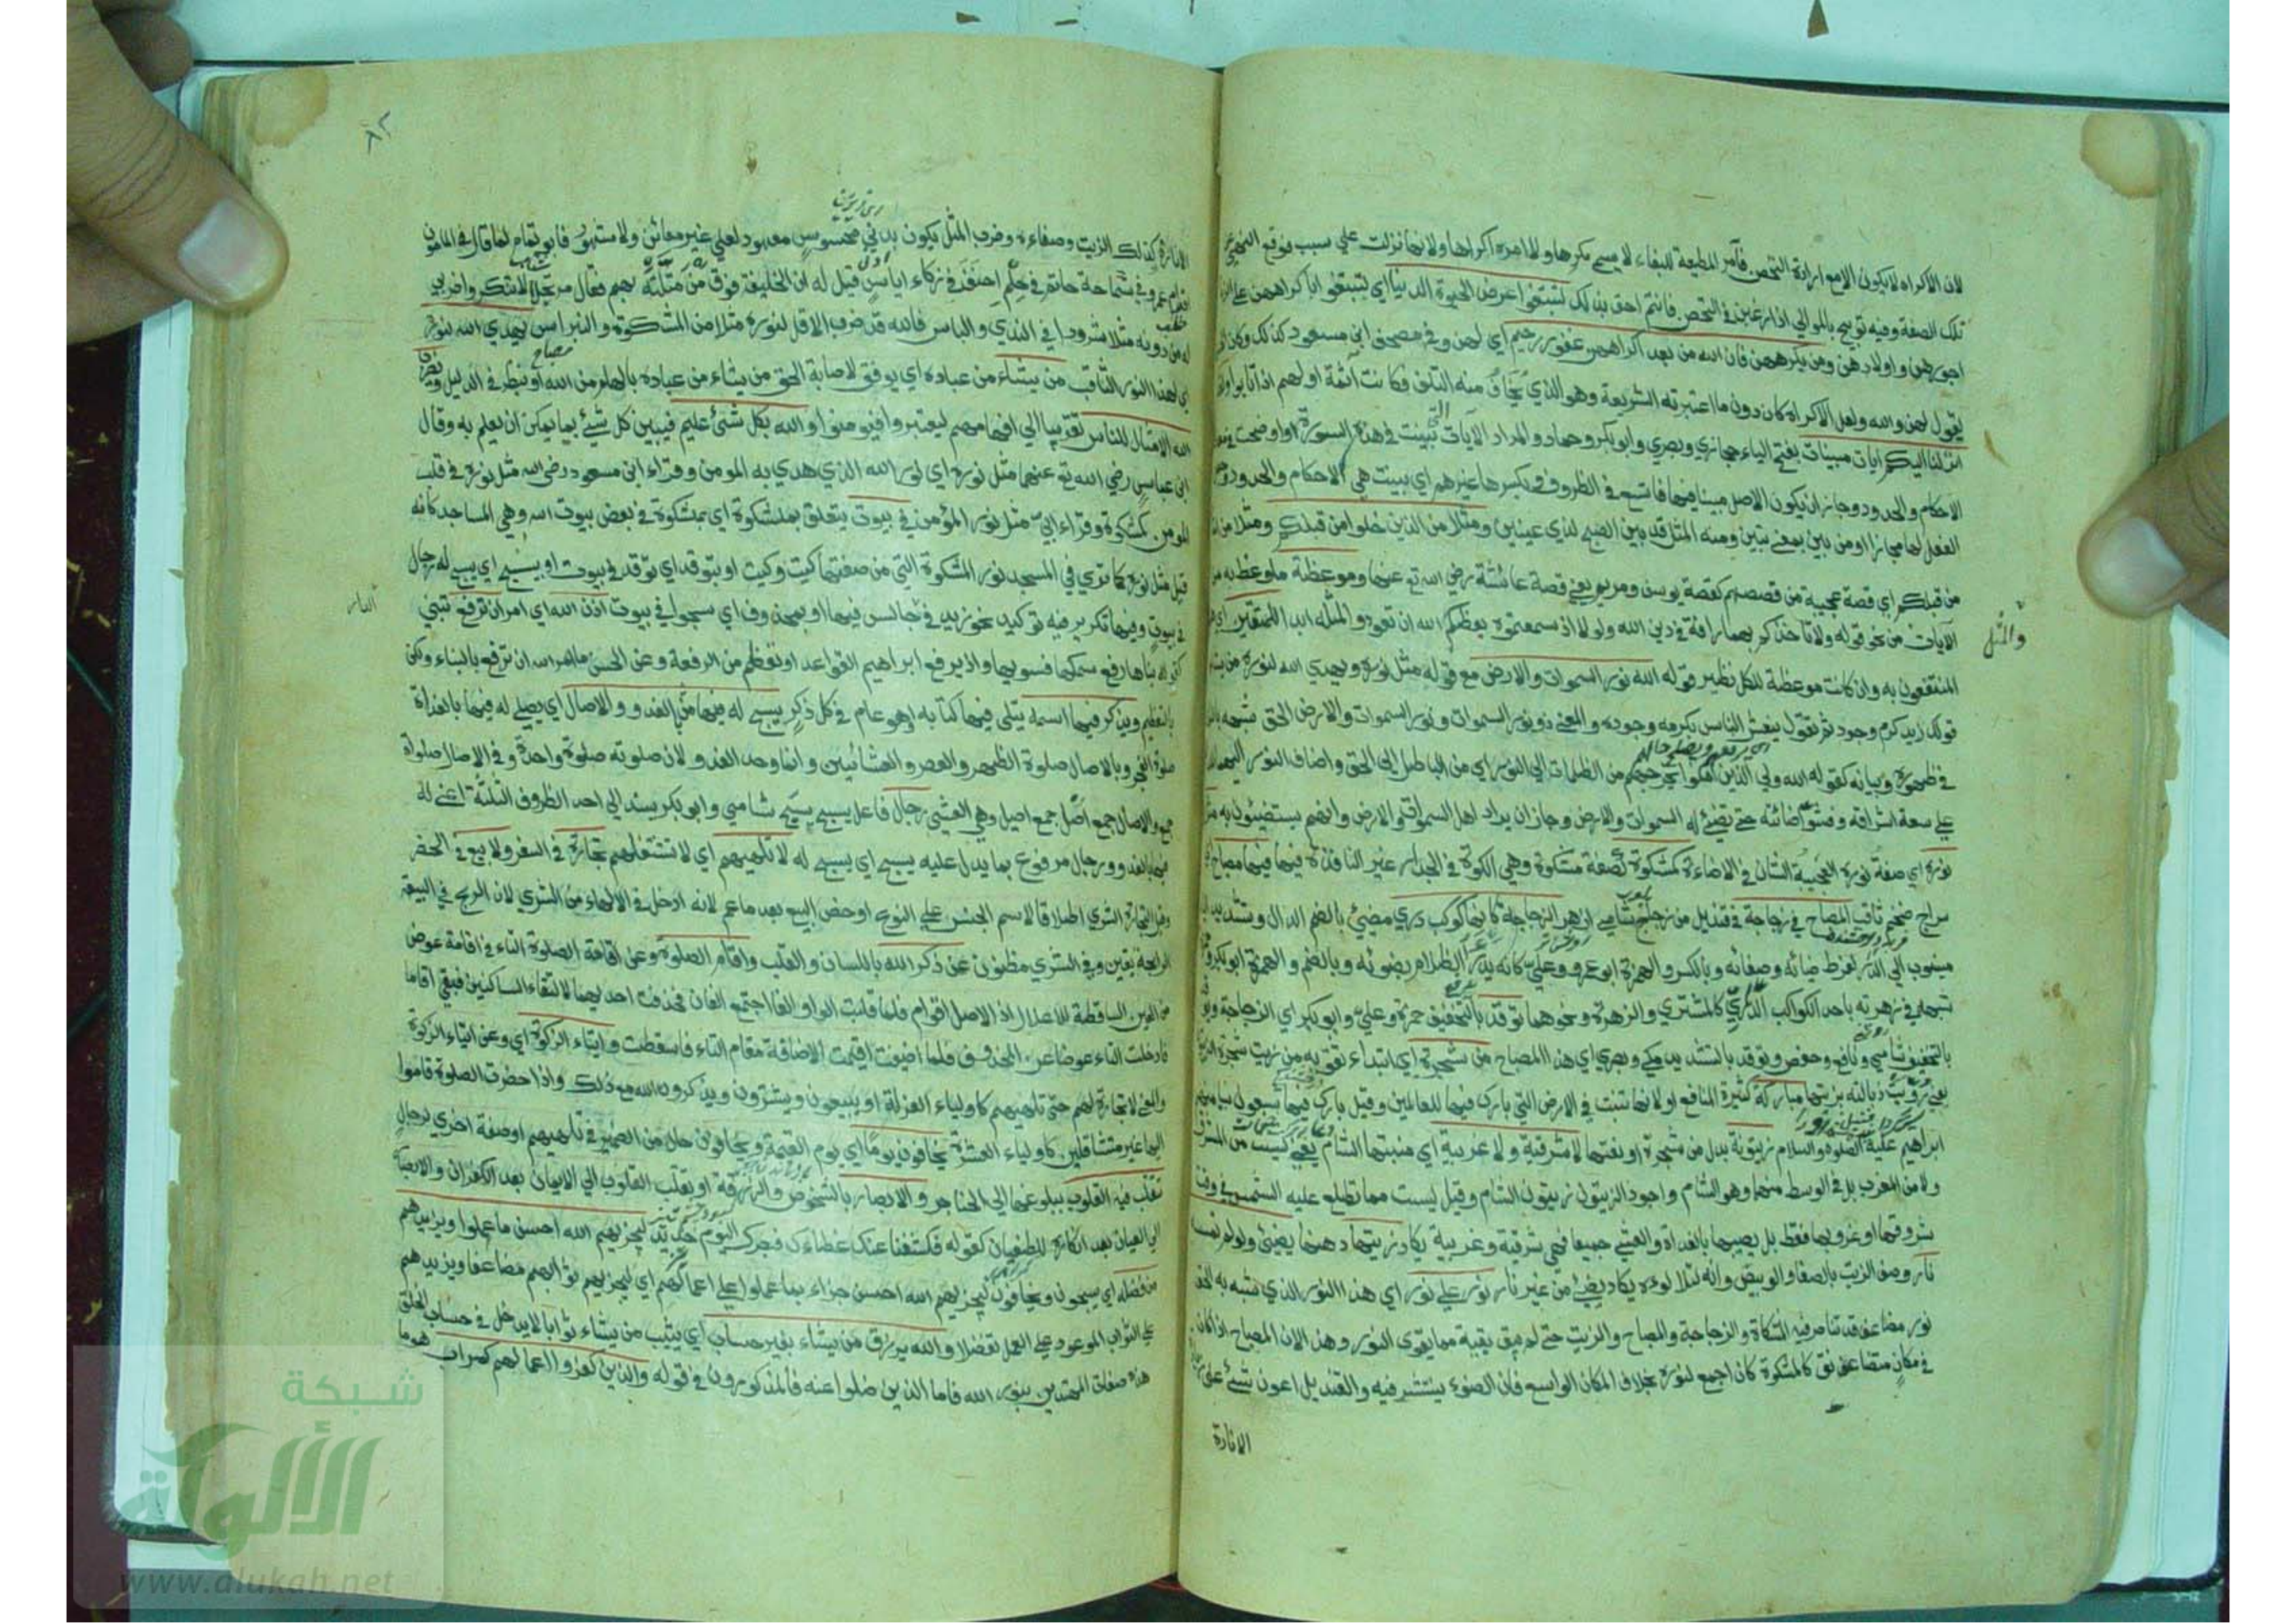 لان الاكراه لا يكون الا مع ارادة التحصن فآمر المطيعة للبغاء لا يسمى مكرها ولا امره اكراها ولانها نزلت على سبب فوقع النهي
تلك الصفة وفيه توبيخ للموالي اذا رغبن في التحصن فانتم احق بذلك لتبتغوا عرض الحيوة الدنيا اي لتبتغوا باكراههن على الزنا
اجورهن واولادهن ومن يكرههن فان الله من بعد اكراههن غفور رحيم اي لهن وفي مصحف ابن مسعود كذلك وكان
يقول لهن والله ولعل الاكراه كان دون ما اعتبرته الشريعة وهو الذي يخاف منه التلف فكانت آثمة او لهم اذا تابوا
انزلنا اليكم ايات مبينات بفتح الياء حجازي وبصري وابو بكر وحماد والمراد الآيات التي بينت في هذه السورة او اوضحت في
الاحكام والحدود وجاز ان يكون الاصل مبينا فيها فاتسع في الظروف وبكسرها غيرهم اي بينت هي الاحكام والحدود
الفعل لها مجازا او من بين بمعنى تبين ومنه المثل قد بين الصبح لذي عينين ومثلا من الذين خلوا من قبلكم ومثلا من
من قبلكم اي قصة عجيبة من قصصهم كقصة يوسف ومريم يعني قصة عائشة رضي الله تع عنها وموعظة ما وعظ به
الآيات من نحو قوله ولا تأخذكم بهما رافة في دين الله ولولا اذ سمعتموه يعظكم الله ان تعودوا لمثله ابدا للمتقين اي
والمثل
المنتفعون به وان كانت موعظة للكل نظير قوله الله نور السموات والارض مع قوله مثل نوره ويهدي الله لنوره من
قولك زيد كرم وجود ثم تقول ينعش الناس بكرمه وجوده والمعنى ذو نور السموات ونور السموات والارض الحق شبهه
في ظهوره وبيانه كقوله الله ولي الذين آمنوا يخرجهم من الظلمات الى النور اي من الباطل الى الحق واضاف النور اليهما
على سعة اشراقه وفشو اضائته حتى تضيئ له السموات والارض وجاز ان يراد اهل السموات والارض وانهم يستضيئون به
نوره اي صفة نوره العجيبة الشان في الاضاءة كمشكوة كصفة مشكوة وهي الكوة في الجدار غير النافذة فيها مصباح
سراج ضخم ثاقب المصباح في زجاجة في قنديل من زجاج شامي ازهر الزجاجة كانها كوكب دري مضيئ بالضم الدال وتشديد
منسوب الى الدر لفرط ضيائه وصفائه وبالكسر والهمزة ابو عمرو وعلي كانه يدرأ الظلام بضوئه وبالضم والهمزة ابو بكر
شبهه في زهرته باحد الكواكب الدراري كالمشتري والزهرة ونحوهما توقد بالتخفيف حمزة وعلي وابو بكر اي الزجاجة
بالتخفيف شامي ونافع وحفص وتوقد بالتشديد مكي وبصري اي هذا المصباح من شجرة اي ابتداء ثقوبه من زيت شجرة
يعني رويت ذبالته بزيتها مباركة كثيرة المنافع او لانها تنبت في الارض التي بارك فيها للعالمين وقيل بارك فيها سبعون نبيا منهم
ابراهيم عليه الصلوة والسلام زيتونة بدل من شجرة او نعتها لا شرقية ولا غربية اي منبتها الشام يعني ليست من المشرق
ولا من المغرب بل في الوسط منهما وهو الشام واجود الزيتون زيتون الشام وقيل ليست مما تطلع عليه الشمس في وقت
شروقها او غروبها فقط بل يصيبها بالغداة والعشي جميعا فهي شرقية وغربية يكاد زيتها دهنها يضيئ ولو لم تمسسه
نار وصف الزيت بالصفا والوبيص وانه لتلألؤه يكاد يضيئ من غير نار نور على نور اي هذا النور الذي شبه به الحق
نور مضاعف قد تناصر فيه المشكاة والزجاجة والمصباح والزيت حتى لم يبق بقية مما يقوى النور وهذا لان المصباح اذا كان
في مكان متضائق كالمشكوة كان اجمع لنوره بخلاف المكان الواسع فان الضوء ينتشر فيه والقنديل اعون شيئ على
الانارة
٨٢
الانارة وكذلك الزيت وصفاءه وضرب المثل يكون بدني محسوس معهود لعلي غير معائن ولا مشهود فابو تمام لما قال في المامون
اقدام عمرو في سماحة حاتم في حلم احنف في ذكاء اياس قيل له ان الخليفة فوق من مثلته بهم فقال مرتجلا لا تنكروا ضربي
له من دونه مثلا شرودا في الندي والباس فالله قد ضرب الاقل لنوره مثلا من المشكوة والنبراس يهدي الله لنوره
اي لهذا النور الثاقب من يشاء من عباده اي يوفق لاصابة الحق من يشاء من عباده بالهام من الله او بنظر في الدليل ويضرب
الله الامثال للناس تقريبا الى افهامهم ليعتبروا فيؤمنوا والله بكل شئ عليم فيبين كل شيئ بما يمكن ان يعلم به وقال
ابن عباس رضي الله تع عنهما مثل نوره اي نور الله الذي هدي به المومن وقراء ابن مسعود رضي الله مثل نوره في قلب
المومن كمشكوة وقراء ابي مثل نور المؤمن في بيوت يتعلق بمشكوة اي كمشكوة في بعض بيوت الله وهي المساجد كانه
قيل مثل نوره كما تري في المسجد نور المشكوة التي من صفتها كيت وكيت او بتوقد اي توقد في بيوت او يسبح اي يسبح له رجال
في بيوت وفيها تكرير فيه توكيد نحو زيد في الدار جالس فيها او بمحذوف اي سبحوا في بيوت اذن الله اي امر ان ترفع تبني
الدار
كقوله بناها رفع سمكها فسويها واذ يرفع ابراهيم القواعد او تعظم من الرفعة وعن الحسن ما امر الله ان ترفع بالبناء ولكن
بالتعظيم ويذكر فيها اسمه يتلى فيها كتابه او هو عام في كل ذكر يسبح له فيها بالغدو والاصال اي يصلي له فيها بالغداة
صلوة الفجر وبالاصال صلوة الظهر والعصر والعشائين وانما وحد الغدو لان صلوته صلوة واحدة وفي الاصال صلوات
جمع والاصال جمع اصل جمع اصيل وهي العشي رجال فاعل يسبح يسبح شامي وابو بكر يسند الى احد الظروف الثلثة اعني له
فيها بالغدو ورجال مرفوع بما يدل عليه يسبح اي يسبح له لا تلهيهم اي لا تشغلهم تجارة في السفر ولا بيع في الحضر
وقيل التجارة الشري اطلاقا لاسم الجنس على النوع او خص البيع بعد ما عم لانه ادخل في الالهاء من الشري لان الربح في البيعة
الرابحة يقين وفي الشري مظنون عن ذكر الله باللسان والقلب واقام الصلوة وعن اقامة الصلوة التاء في اقامة عوض
من العين الساقطة للاعلال اذ الاصل اقوام فلما قلبت الواو الفا اجتمع الفان فحذفت احديهما لالتقاء الساكنين فبقي اقاما
فادخلت التاء عوضا عن المحذوف فلما اضيفت اقيمت الاضافة مقام التاء فاسقطت وايتاء الزكوة اي وعن ايتاء الزكوة
والمعنى لا تجارة لهم حتى تلهيهم كاولياء العزلة او يبيعون ويشترون ويذكرون الله مع ذلك واذا حضرت الصلوة قاموا
اليها غير متثاقلين كاولياء العشرة يخافون يوما اي يوم القيمة ويخافون حال من الضمير في تلهيهم او صفة اخري لرجال
تتقلب فيه القلوب ببلوغها الى الحناجر والابصار بالشخوص والزرقة او تقلب القلوب الى الايمان بعد الكفران والابصار
الى العيان بعد انكاره للطغيان كقوله فكشفنا عنك غطاءك فبصرك اليوم حديد ليجزيهم الله احسن ما عملوا ويزيدهم
من فضله اي يسبحون ويخافون ليجزيهم الله احسن جزاء بما عملوا على اعمالهم اي ليجزيهم ثوابهم مضاعفا ويزيدهم
على الثواب الموعود على العمل تفضلا والله يرزق من يشاء بغير حساب اي يثيب من يشاء ثوابا لا يدخل في حساب الخلق
هذه صفات المهتدين بنور الله فاما الذين ضلوا عنه فالمذكورون في قوله والذين كفروا اعمالهم كسراب هو ما
شبكة
الألوكة
www.alukah.net